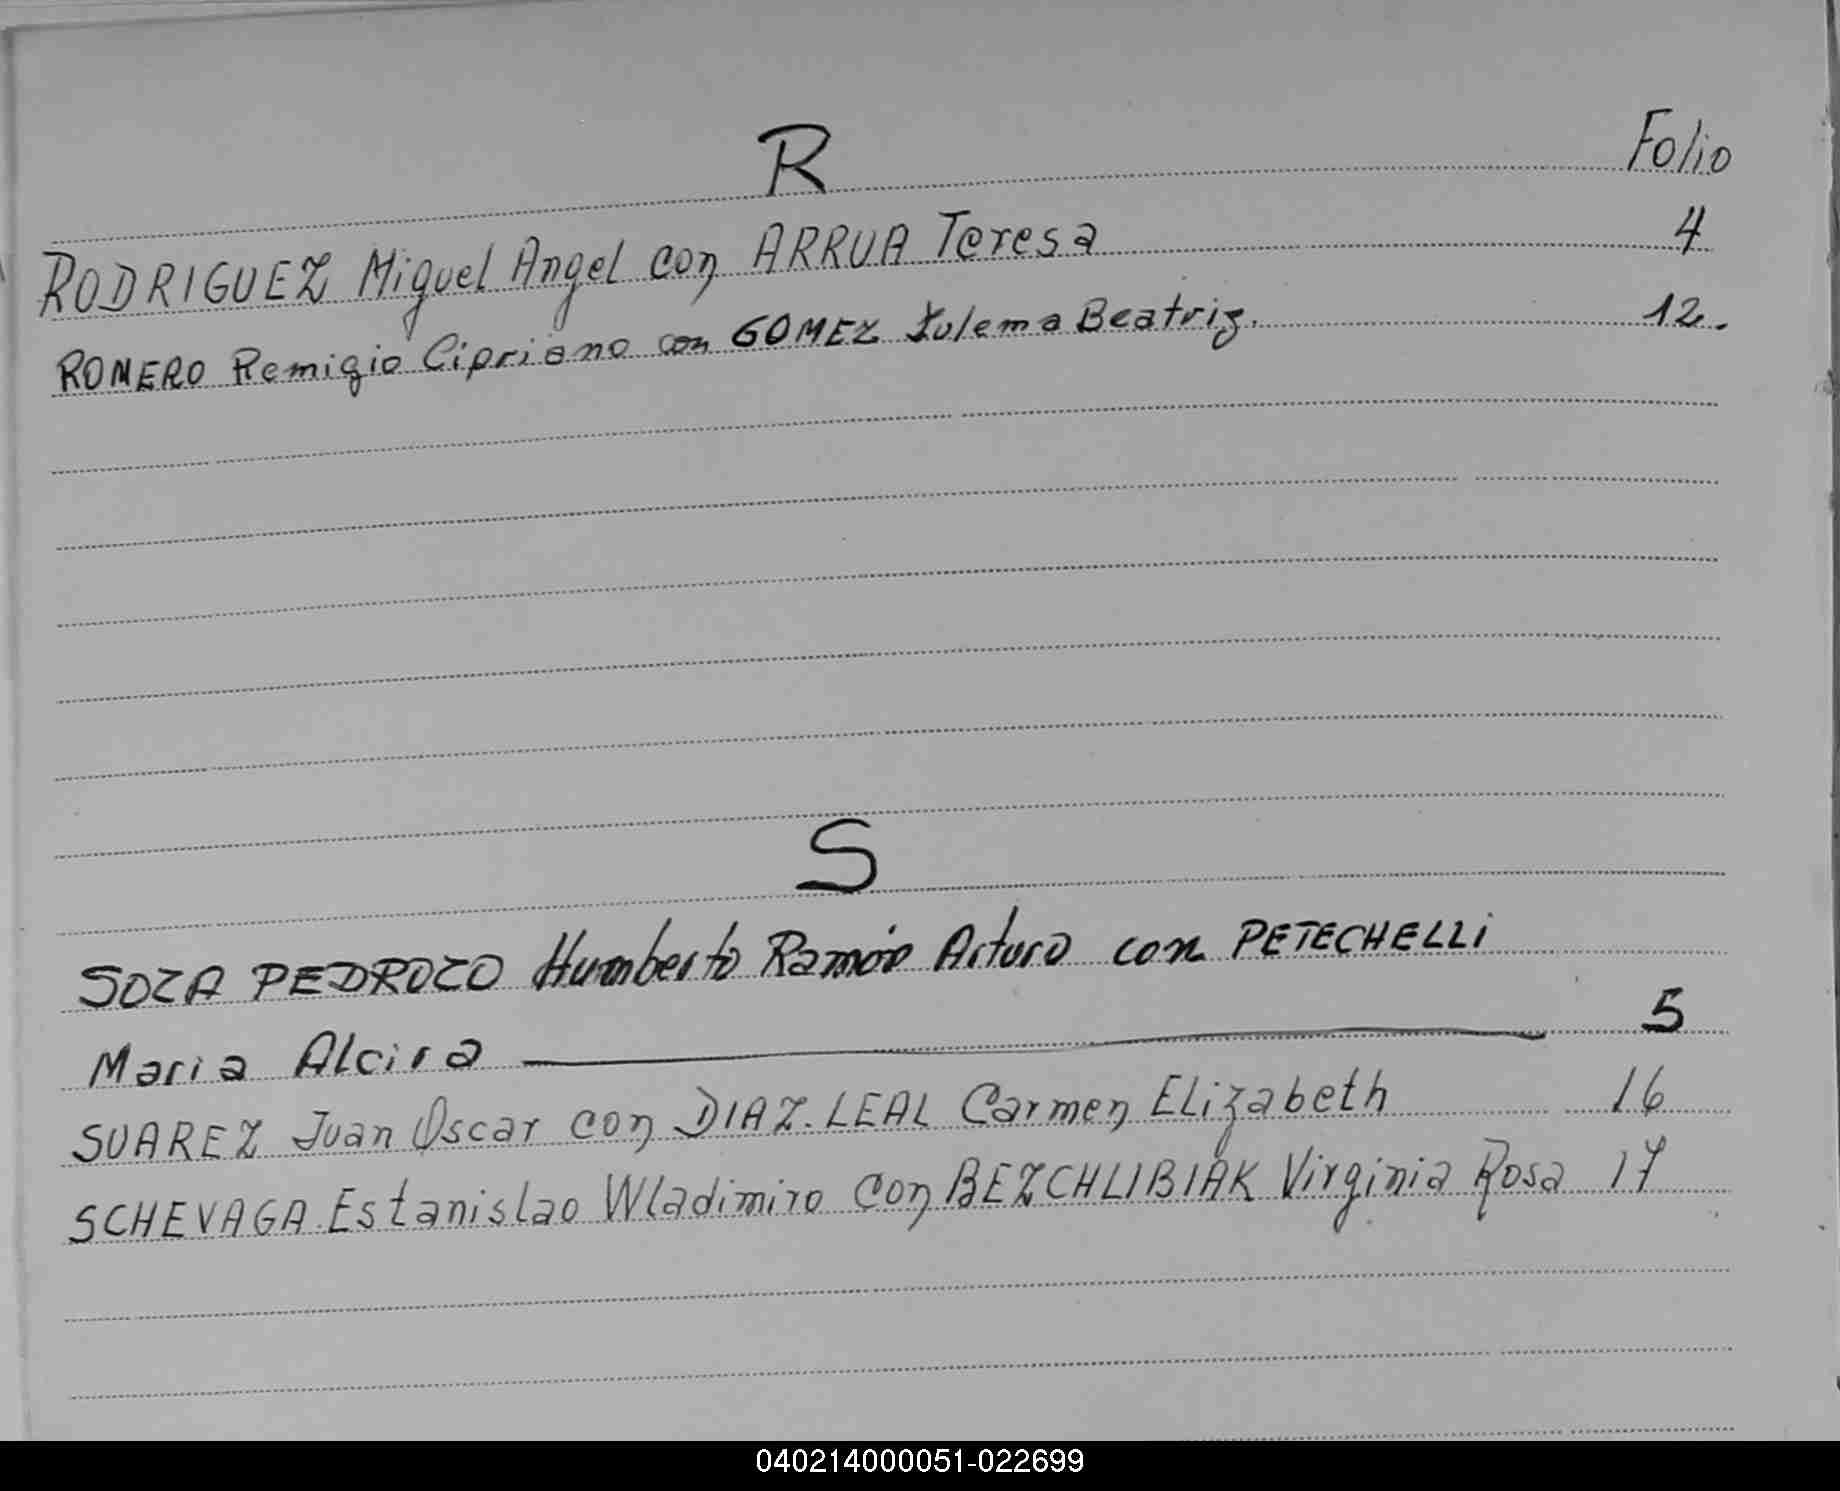 R Folio
RODRIGUEZ Miguel Angel con ARRUA Teresa 4
ROMERO Remigio Cipriano con GOMEZ Zulema Beatriz. 12.
S
SOZA PEDROZO Humberto Ramón Arturo con PETECHELLi
Maria Alcira 5
SUAREZ Juan Oscar con DIAZ. LEAL Carmen Elizabeth 16
SCHEVAGA Estanislao Wladimiro con BEZCHLIBIAK Virginia Rosa 17
040214000051-022699